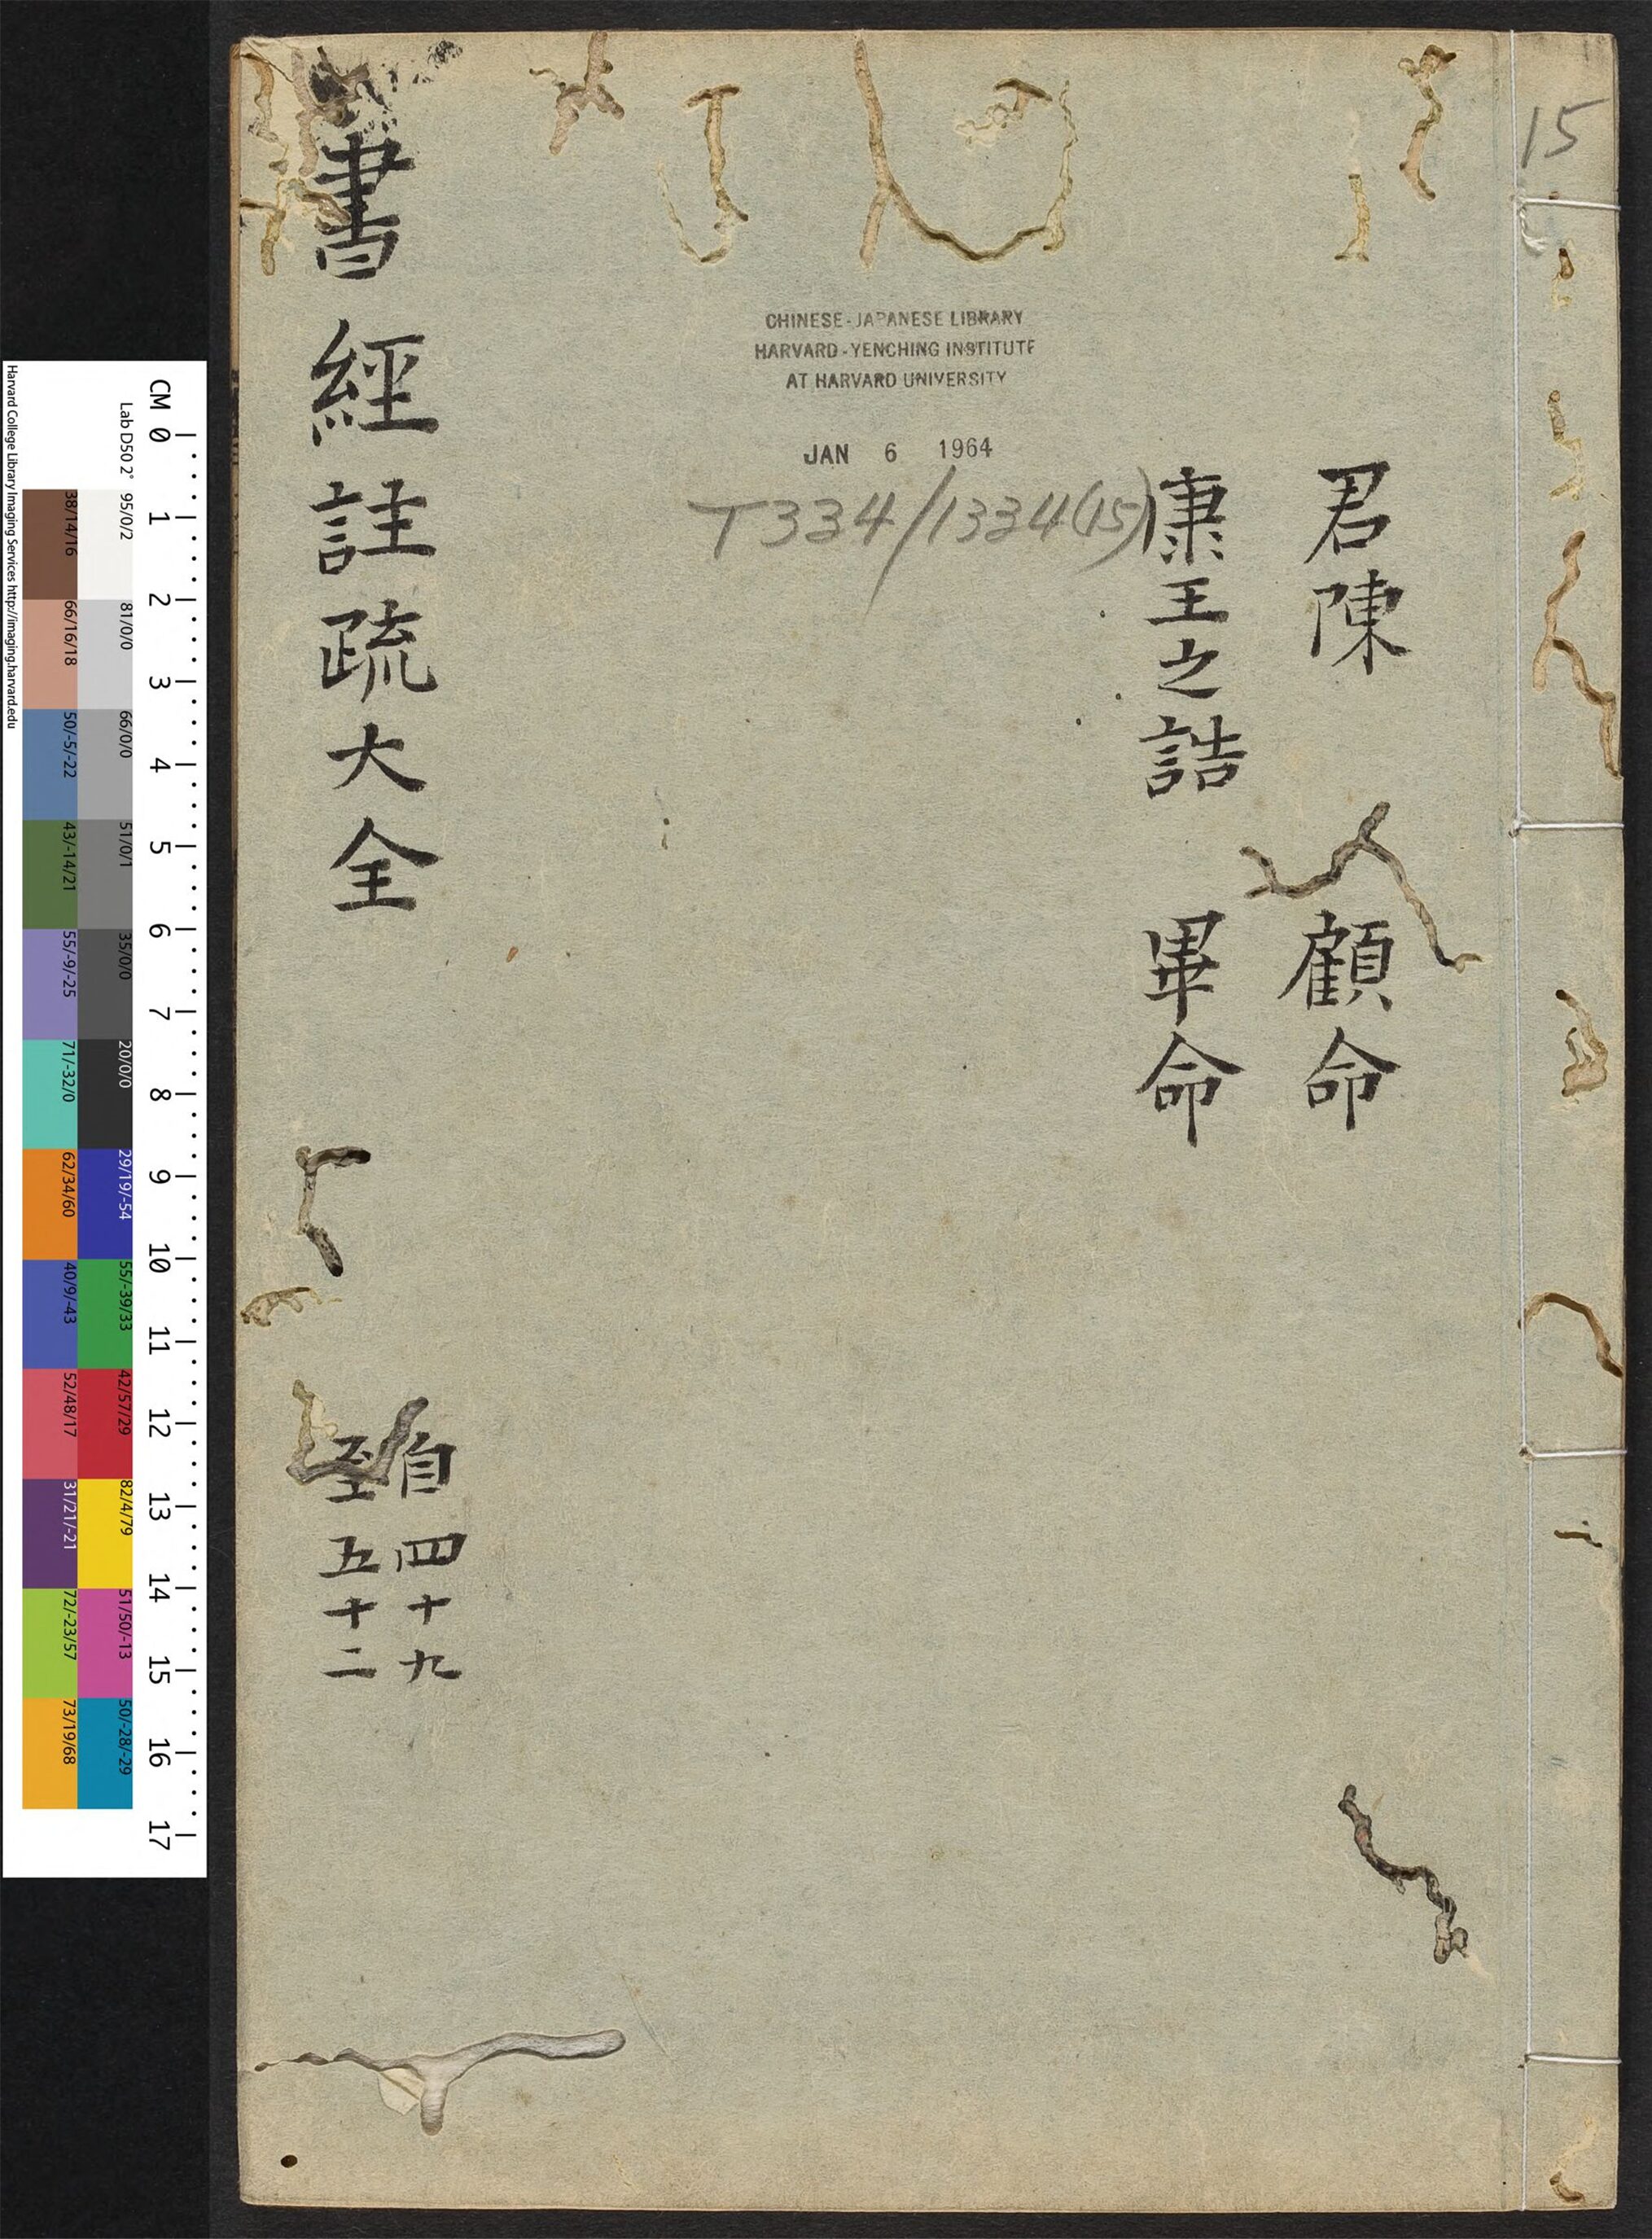 15
君陳 顧命
康王之誥 畢命
CHINESE-JAPANESE LIBRARY
HARVARD-YENCHING INSTITUTE
AT HARVARD UNIVERSITY
JAN 6 1964
T334/1334(15)
書經註疏大全
自四十九
至五十二
CM 0 1 2 3 4 5 6 7 8 9 10 11 12 13 14 15 16 17
Lab D50 2° 95/0/2 81/0/0 66/0/0 51/0/1 35/0/0 20/0/0 29/19/-54 55/-39/33 42/57/29 82/4/79 51/50/-13 50/-28/-29
38/14/16 66/16/18 50/-5/-22 43/-14/21 55/-9/-25 71/-32/0 62/34/60 40/9/-43 52/48/17 31/21/-21 72/-23/57 73/19/68
Harvard College Library Imaging Services http://imaging.harvard.edu